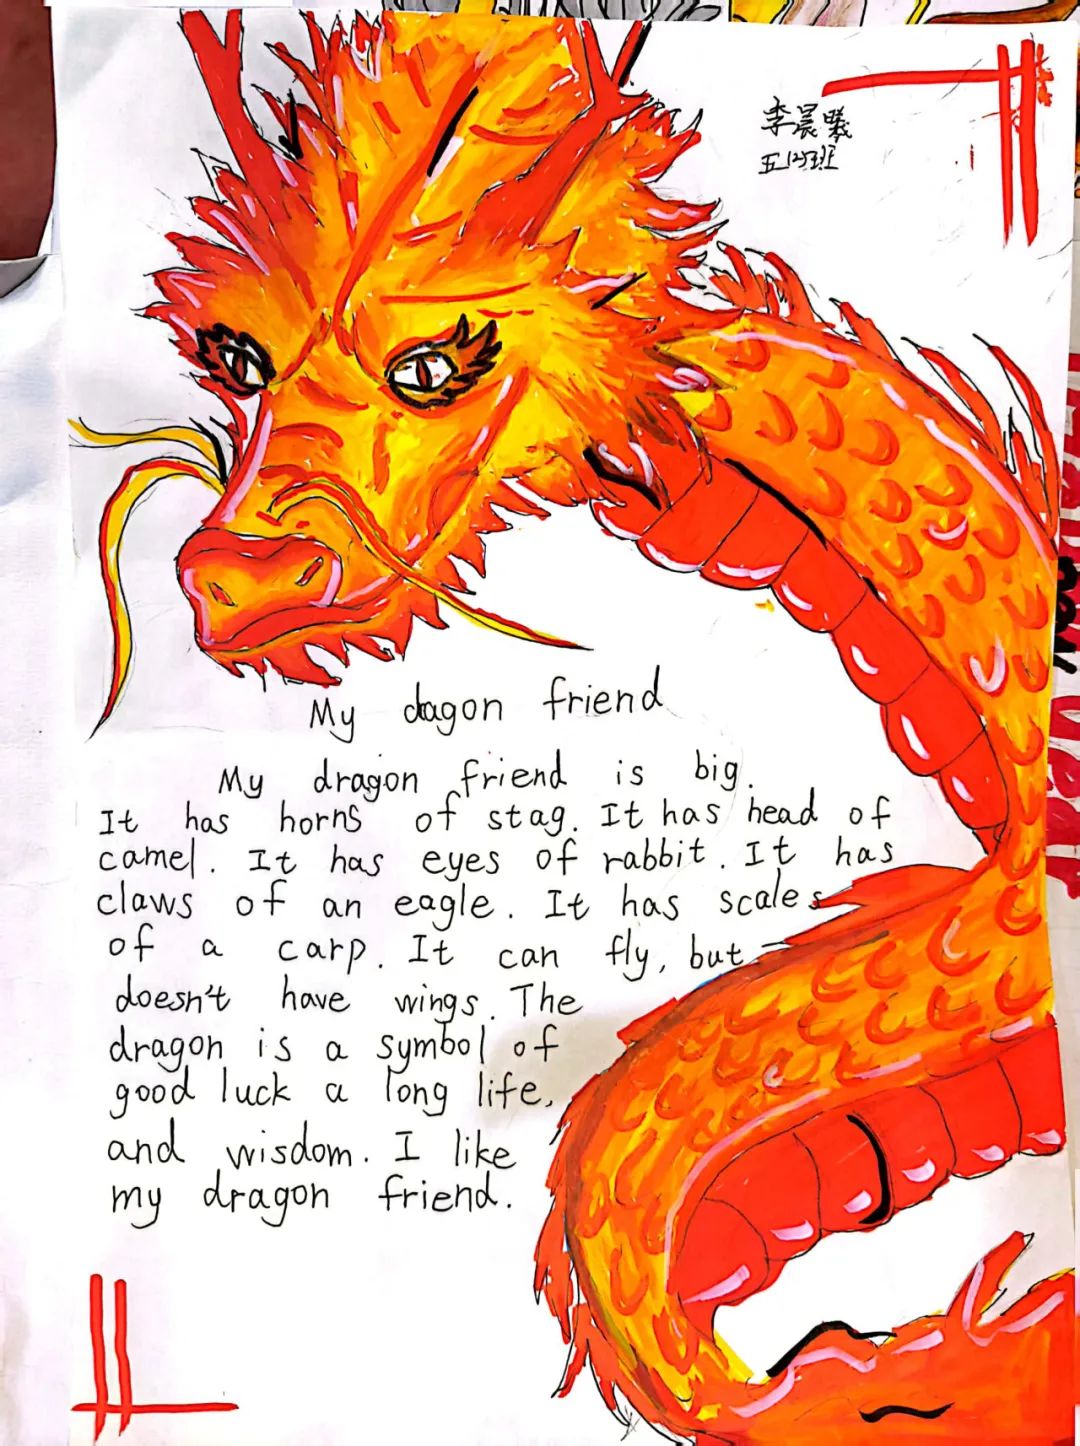 李晨曦
五(2)班
My dagon friend
My dragon friend is big.
It has horns of stag. It has head of
camel. It has eyes of rabbit. It has
claws of an eagle. It has scales
of a carp. It can fly, but
doesn't have wings. The
dragon is a symbol of
good luck a long life,
and wisdom. I like
my dragon friend.